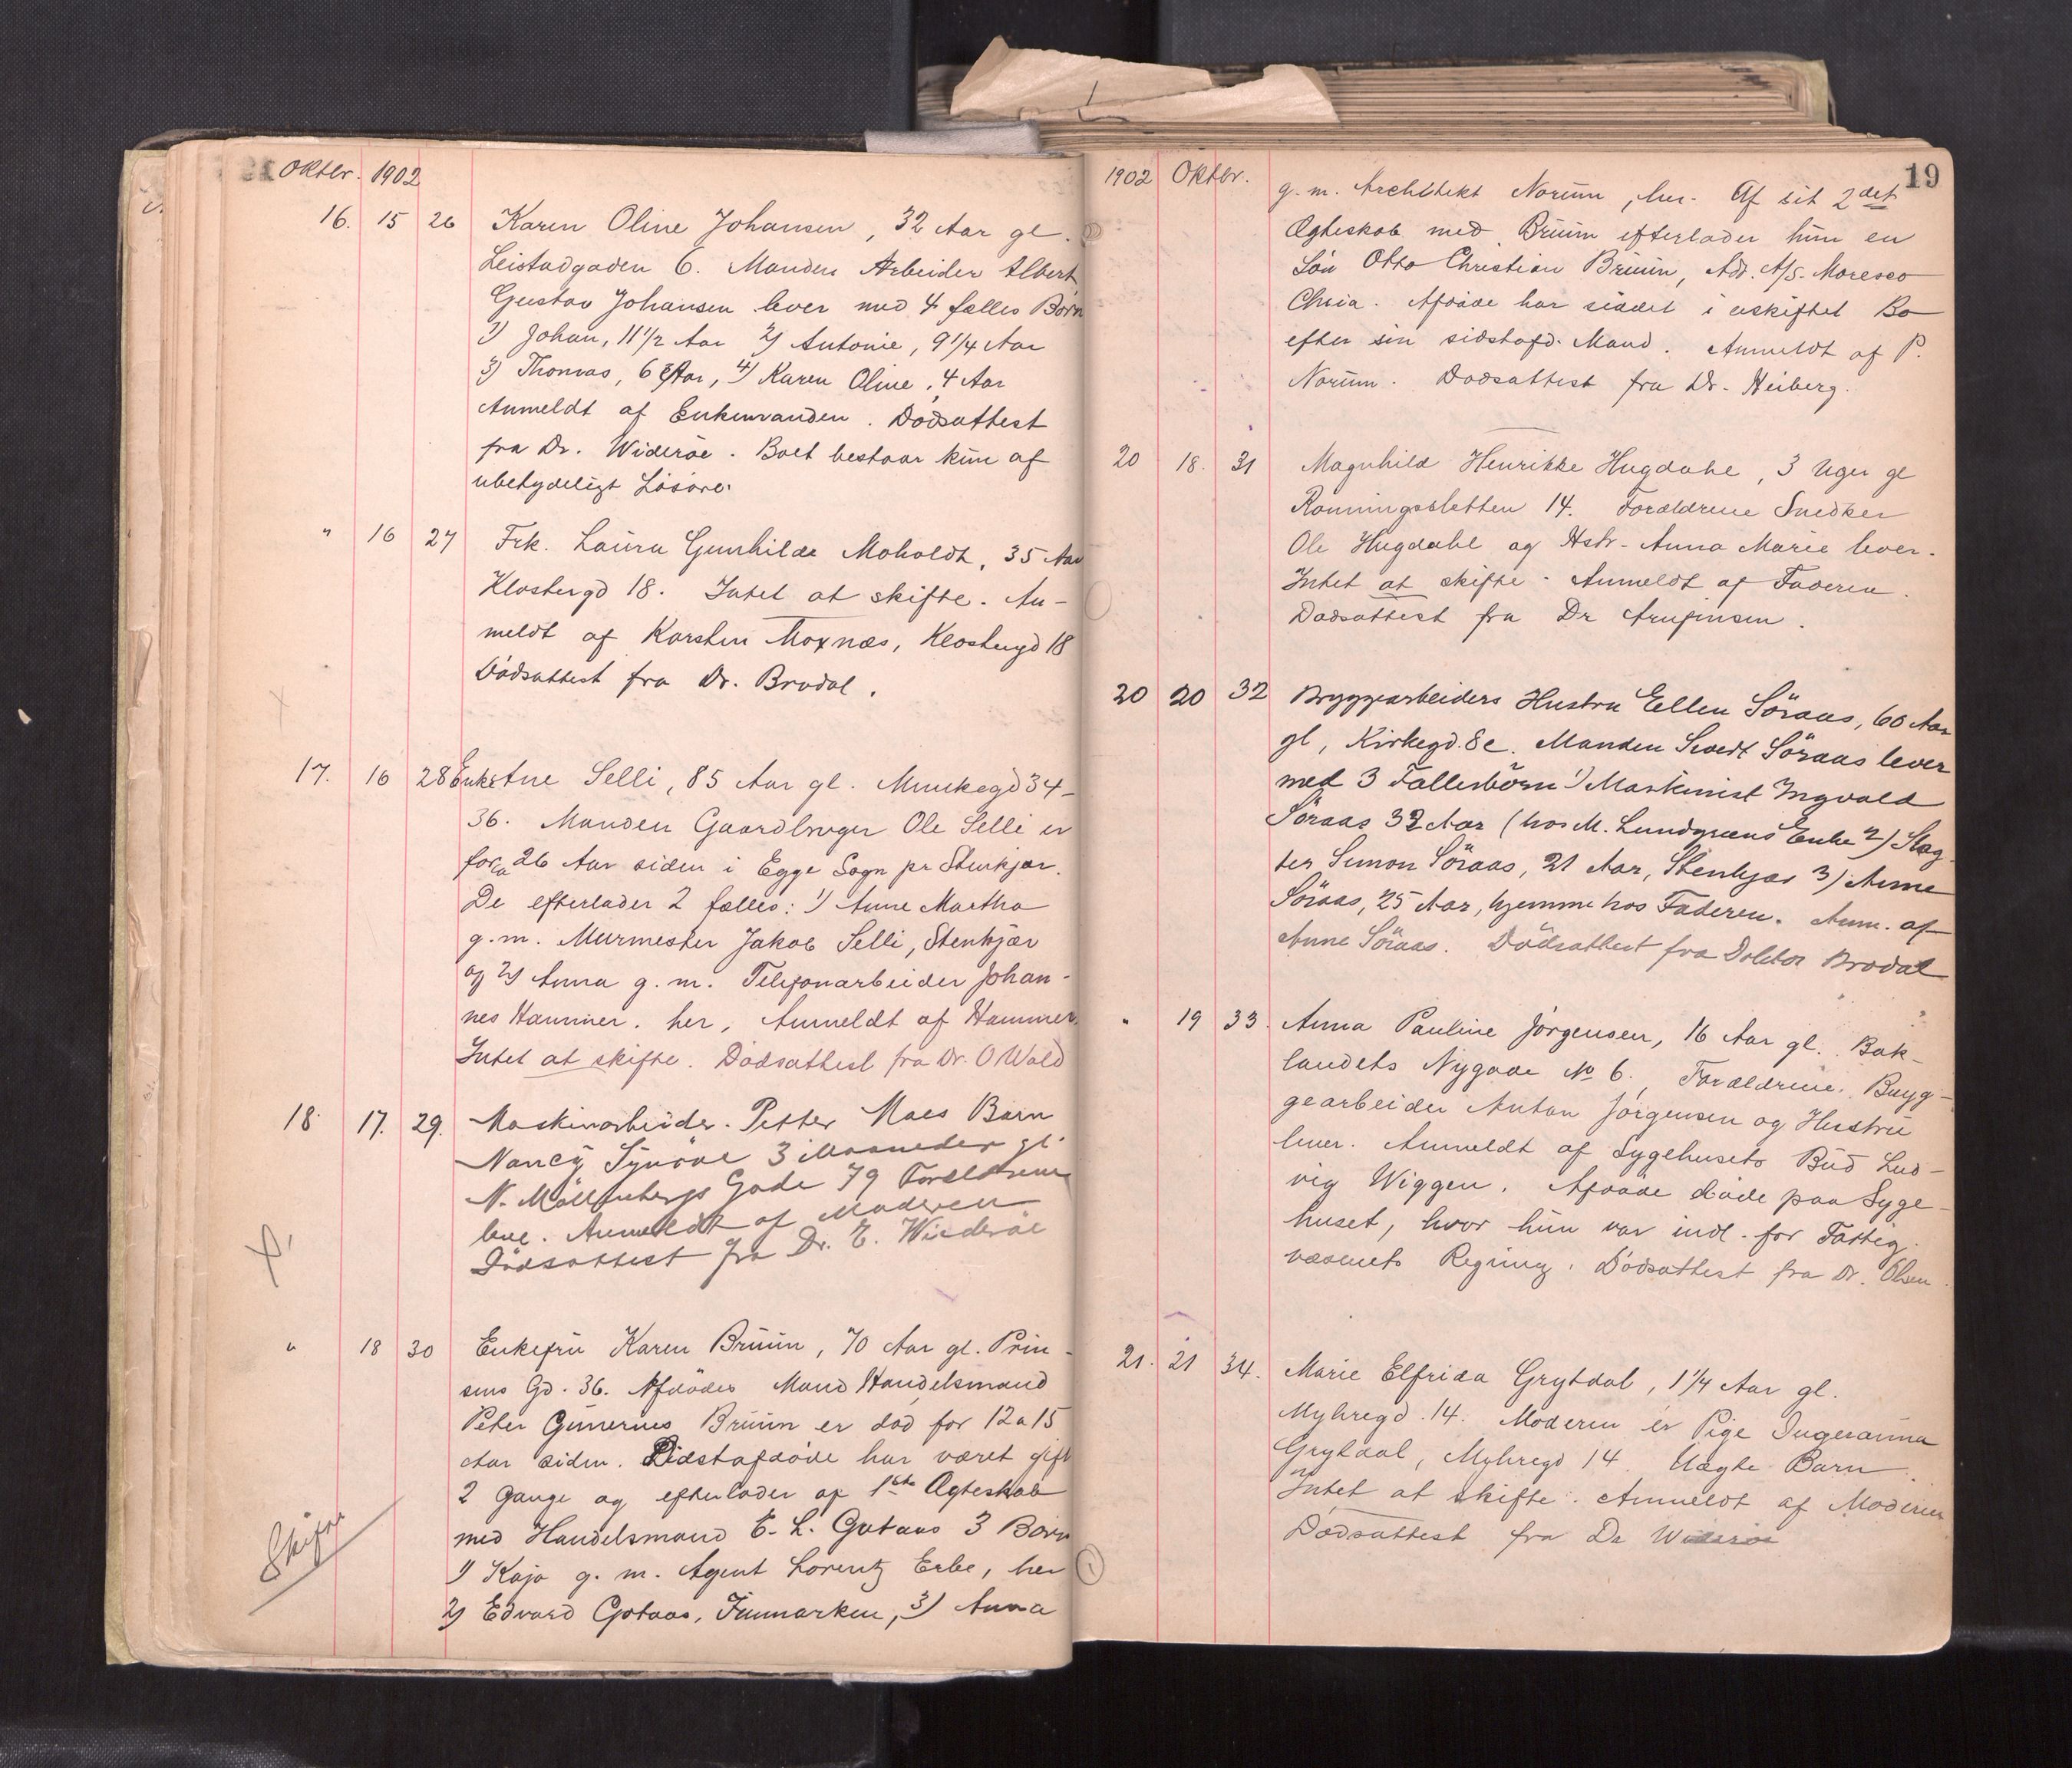 Oktbr. 1902
16. 15 26 Karen Oline Johansen, 32 Aar gl.
Leistadgaden 6. Manden Arbeider Albert
Gustav Johansen lever med 4 fælles Børn
1) Johan, 11 1/2 Aar 2) Antonie, 9 1/4 Aar
3) Thomas, 6 Aar, 4) Karen Oline, 4 Aar
Anmeldt af Enkemanden. Dødsattest
fra Dr. Widerøe. Boet bestaar kun af
ubetydeligt Løsøre.
" 16 27 Frk. Laura Gunhilda Moholdt, 35 Aar
Klostergd 18. Intet at skifte. An-
meldt af Karsten Moxnæs, Klostergd 18
Dødsattest fra Dr. Brodal.
17. 16 28 Enke Ane Selli, 85 Aar gl. Munkegd 34-
36. Manden Gaardbruger Ole Selli er
for ca 26 Aar siden i Egge Sogn pr Stenkjær.
De efterlader 2 fælles: 1) Anne Martha
g.m. Murmester Jakob Selli, Stenkjær
og 2) Anna g.m. Telefonarbeider Johan-
nes Hammer. her, Anmeldt af Hammer.
Intet at skifte. Dødsattest fra Dr. O Wold
18. 17. 29. Maskinarbeider Petter Moes Barn
Nancy Synøve 3 Maaneder gl.
N. Möllenbergs Gade 79 Forældrene
leve. Anmeldt af Moderen
Dødsattest fra Dr. E. Wiederøe
" 18 30 Enkefru Karen Bruun, 70 Aar gl. Prin-
sens Gd. 36. Afdødes Mand Handelsmand
Peter Bruun er død for 12 a 15
Aar siden. Sidstafdøde har været gift
2 Gange og efterlader af 1ste Ægteskab
med Handelsmand E. L. Gotaas 3 Børn
1) Kaja g.m. Agent Lorentz Erbe, her
2) Edvard Gotaas, Finmarken, 3) Anna
Skifte
1902 Oktbr. 19
g.m. Architekt Norum, her. Af sit 2det
Ægteskab med Bruun efterlader hun en
Søn Otto Christian Bruun, Adr. A/S. Moresco
Chria. Afdøde har siddet i uskiftet Bo
efter sin sidstafd. Mand. Anmeldt af P.
Norum. Dødsattest fra Dr. Heiberg.
20 18. 31 Magnhild Henrikke Hugdahl, 3 Uger gl
Rønningsletten 14. Forældrene Snedker
Ole Hugdahl og Hstr. Anna Marie lever.
Intet at skifte. Anmeldt af Faderen.
Dødsattest fra Dr
20 20 32 Bryggearbeiders Hustru Ellen Söraas, 60 Aar
gl, Kirkegd. 8c. Manden Sivert Söraas lever
med 3 Fællesbörn 1) Maskinist Ingvald
Söraas 32 Aar (hos M. Lundgreens Enke 2) Slag-
ter Simon Söraas, 21 Aar, Stenkjær 3) Anne
Söraas, 25 Aar, hjemme hos Faderen. Anm. af
Anne Söraas. Dödsattest fra Doktor Brodal
" 19 33. Anna Pauline Jørgensen, 16 Aar gl. Bak-
landets Nygade No 6. Forældrene. Bryg-
gearbeider Anton Jørgensen og Hustru
lever. Anmeldt af Sygehusets Bud Lud-
vig Wiggen. Afdøde døde paa Syge-
huset, hvor hun var indl. for Fattig-
væsenets Regning. Dødsattest fra Dr. Olsen.
21. 21 34. Marie Elfrida Grytdal, 1 1/4 Aar gl.
Myhregd. 14. Moderen er Pige Ingeranna
Grytdal, Myhregd 14. Uægte Barn.
Intet at skifte. Anmeldt af Moderen
Dødsattest fra Dr Widerøe